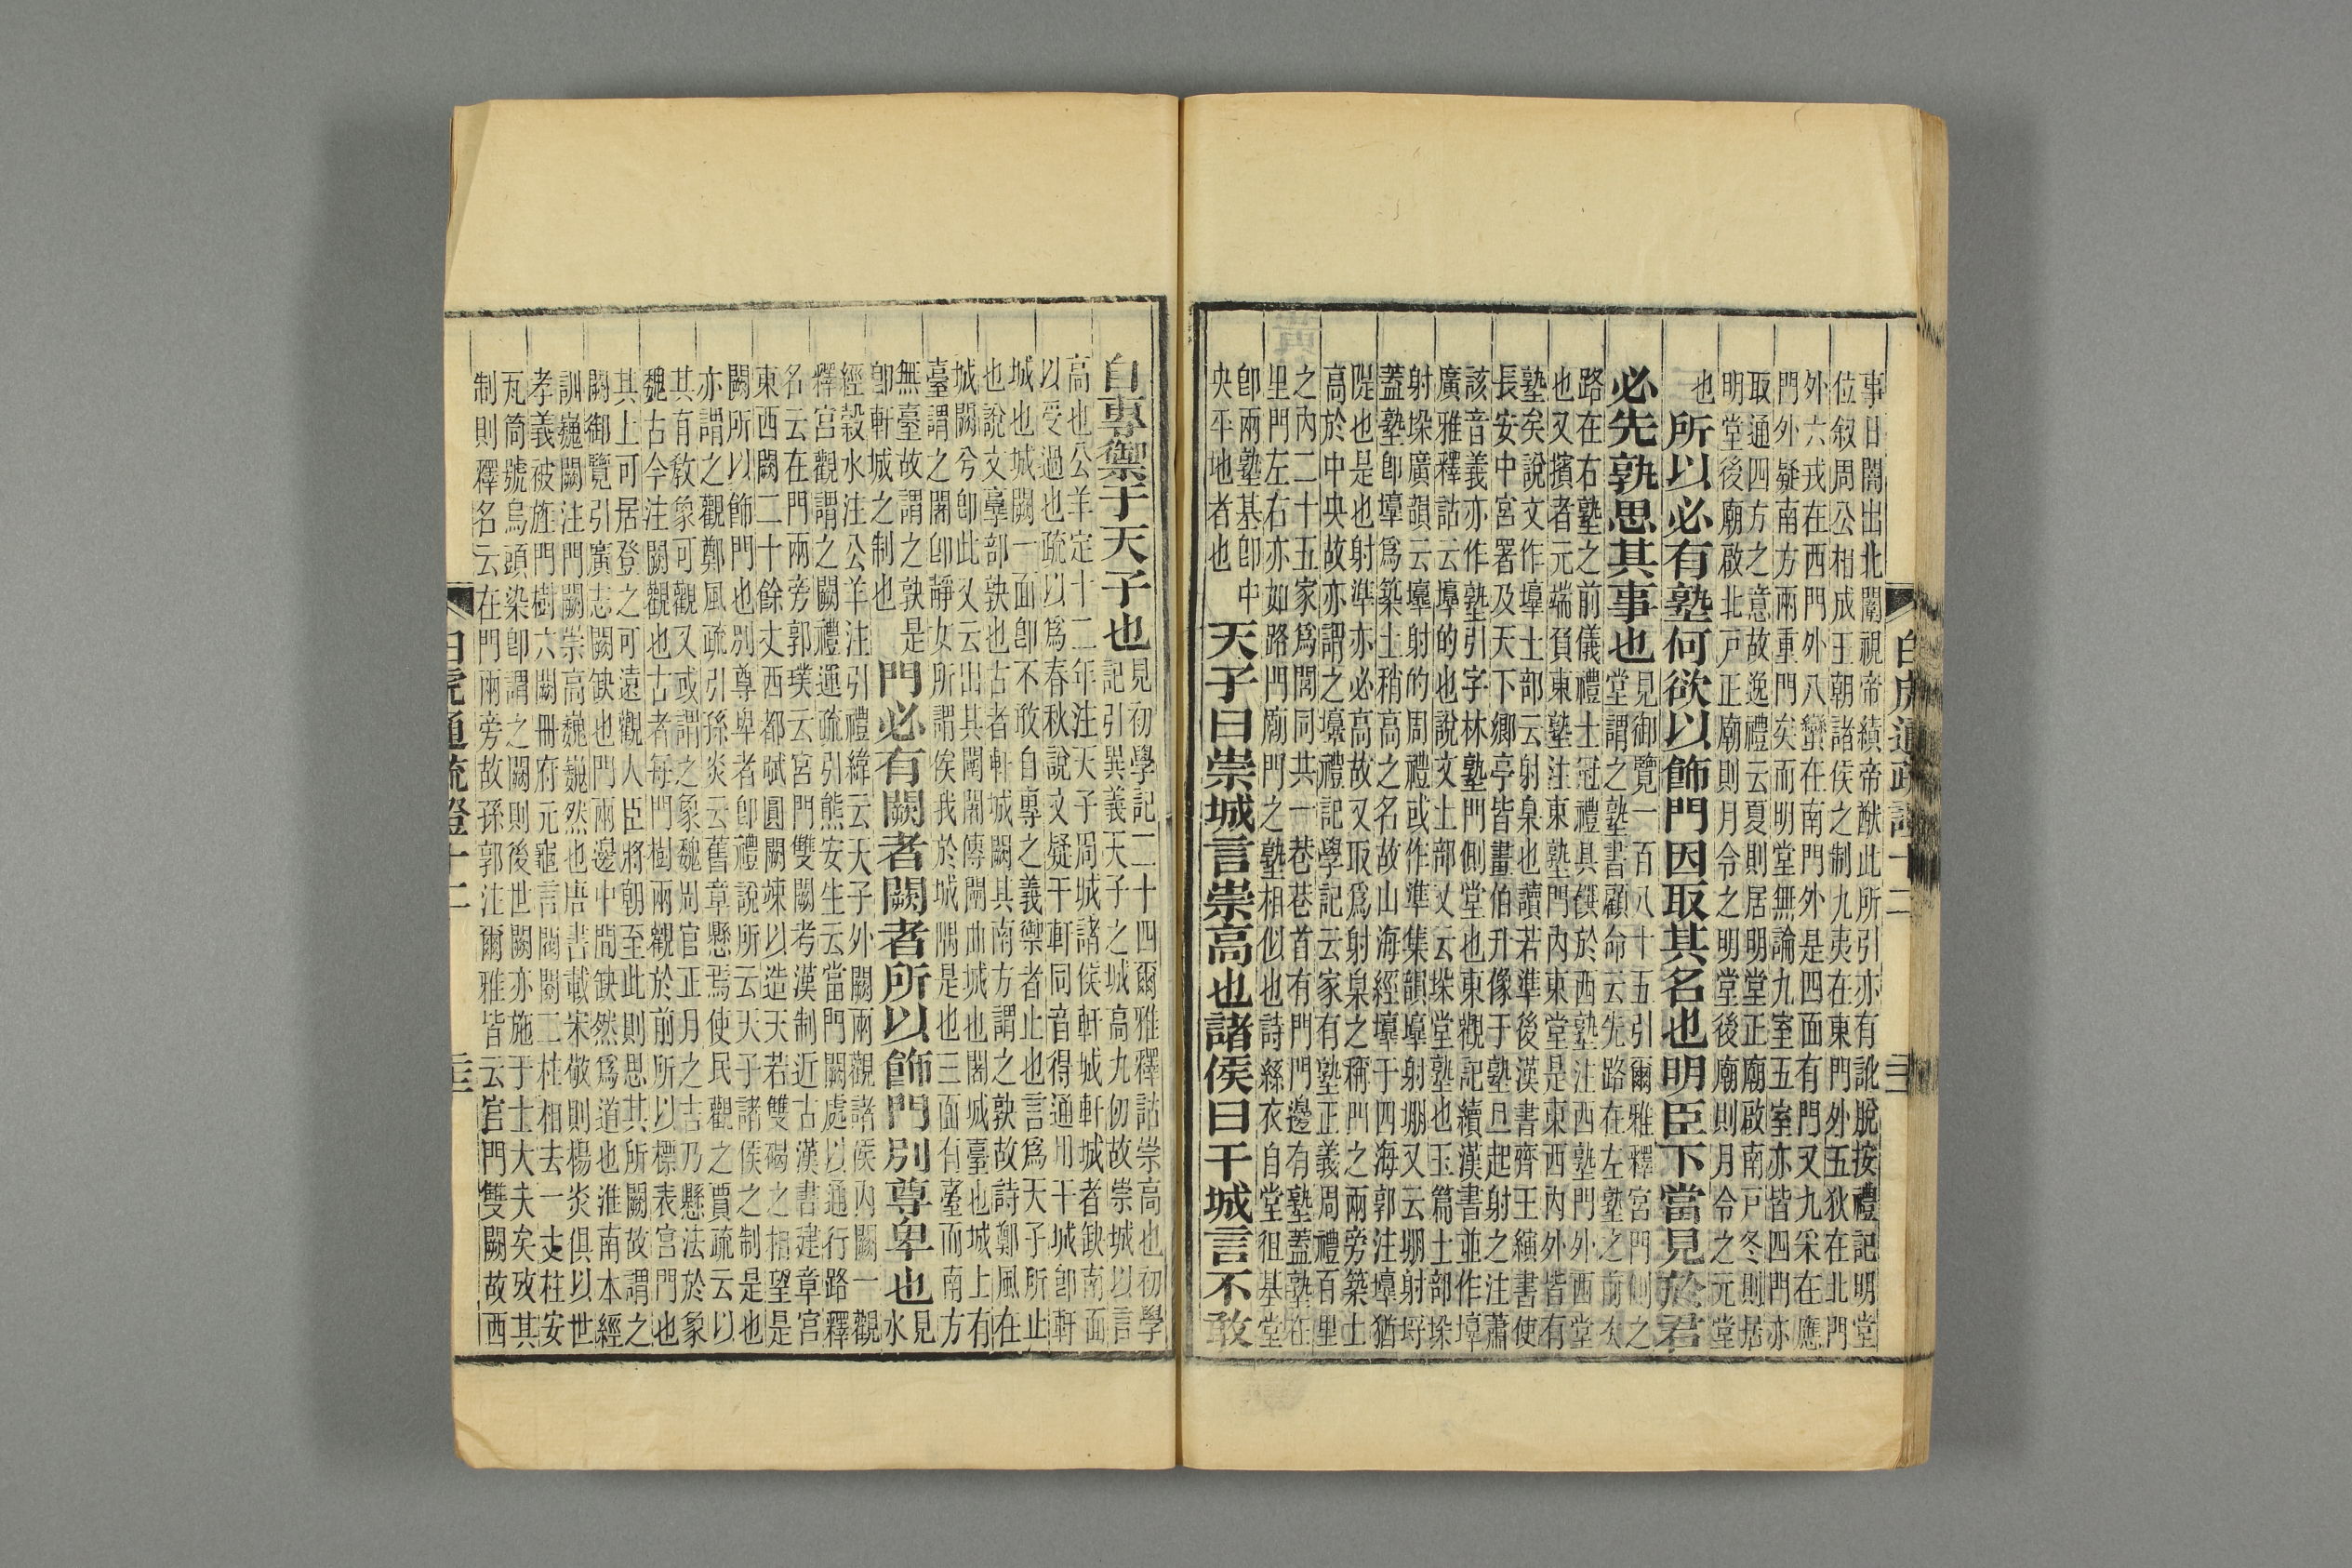 事曰闇出北闈視帝績帝猷此所引亦有訛脫按禮記明堂
位叙周公相成王朝諸侯之制九夷在東門外五狄在北門
外六戎在西門外八蠻在南門外是四面有門又九采在應
門外疑南方兩重門矣而明堂無論九室五室亦皆四門亦
取通四方之意故逸禮云夏則居明堂正廟啟南戶冬則居
明堂後廟啟北戶正廟則月令之明堂後廟則月令之元堂
也
所以必有塾何欲以飾門因取其名也明臣下當見於君
必先孰思其事也
見御覽一百八十五引爾雅釋宮門側之
堂謂之塾書顧命云先路在左塾之前次
路在右塾之前儀禮士冠禮具饌於西塾注西塾門外西堂
也又擯者元端負東塾注東塾門內東堂是東西內外皆有
塾矣說文作𡑞土部云射臬也讀若準後漢書齊王縯書使
長安中宮署及天下鄉亭皆畫伯升像于塾旦起射之注蕭
該音義亦作塾引字林塾門側堂也東觀記續漢書並作𡑞
廣雅釋詁云𡑞的也說文土部又云垛堂塾也玉篇土部垛
射垛廣韻云𡑞射的周禮或作準集韻𡑞射堋又云堋射埒
蓋塾卽𡑞爲築土稍高之名故山海經𡑞于四海郭注𡑞猶
隄也是也射準亦必高故又取爲射臬之稱門之兩旁築土
高於中央故亦謂之𡑞禮記學記云家有塾正義周禮百里
之內二十五家爲閭同共一巷巷首有門門邊有塾蓋塾在
里門左右亦如路門廟門之塾相似也詩絲衣自堂徂基堂
卽兩塾基卽中
央平地者也
天子曰崇城言崇高也諸侯曰干城言不敢
自專禦于天子也
見初學記二十四爾雅釋詁崇高也初學
記引異義天子之城高九仞故崇城以言
高也公羊定十二年注天子周城諸侯軒城軒城者缺南面
以受過也疏以爲春秋說文疑干軒同音得通用干城卽軒
城也城闕一面卽不敢自專之義禦者止也言爲天子所止
也說文𩫏部𦐧也古者城闕其南方謂之𦐧故詩鄭風在
城闕兮卽此又云出其闉闍傳闉曲城也闍城臺也城上有
臺謂之闍卽靜女所謂俟我於城隅是也三面有臺而南方
無臺故謂之𦐧是
卽軒城之制也
門必有闕者闕者所以飾門別尊卑也
見
水
經穀水注公羊注引禮緯云天子外闕兩觀諸侯內闕一觀
釋宮觀謂之闕禮通疏引熊安生云當門闕處以通行路釋
名云在門兩旁郭璞云宮門雙闕考漢制近古漢書建章宮
東西闕二十餘丈西都賦圓闕竦以造天若雙碣之相望是
闕所以飾門也別尊卑者卽禮說所云天子諸侯之制是也
亦謂之觀鄭風疏引孫炎云舊章懸焉使民觀之賈疏云以
其有教象可觀又或謂之象魏周官正月之吉乃懸法於象
魏古今注闕觀也古者每門樹兩觀於前所以標表宮門也
其上可居登之可遠觀人臣將朝至此則思其所闕故謂之
闕御覽引廣志闕缺也門兩邊中間缺然爲道也淮南本經
訓巍闕注門闕崇高巍巍然也唐書載宋敬則楊炎俱以世
孝義被旌門樹六闕冊府元龜言閥閱二柱相去一丈柱安
瓦筒號烏頭染卽謂之闕則後世闕亦施于士大夫矣攷其
制則釋名云在門兩旁故孫郭注爾雅皆云宮門雙闕故西
白虎通疏證十二